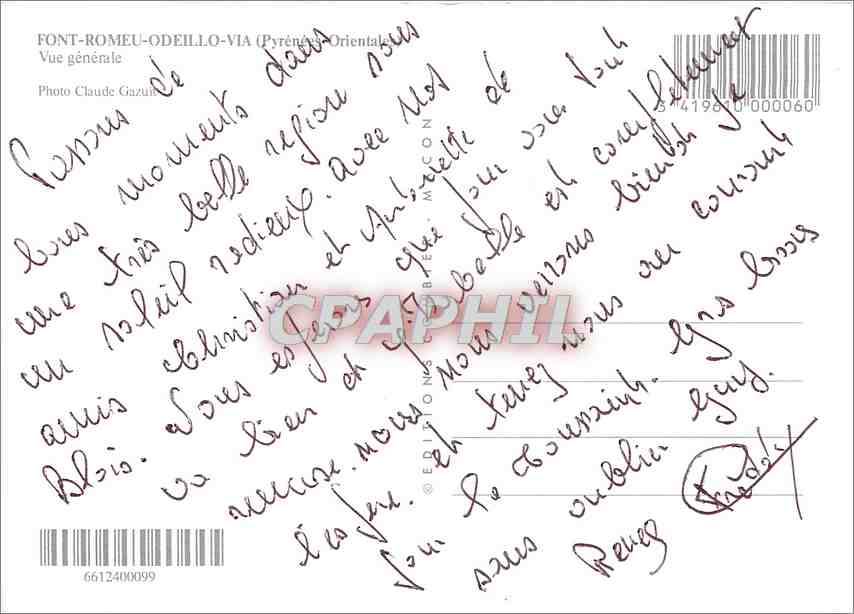 FONT-ROMEU-ODEILLO-VIA (Pyrénées-Orientales)
Vue générale
Photo Claude Gazuit
3 419610 000060
Passons de
bons moments dans
une très belle région sous
un soleil radieux. avec nos
amis Christian et Antoinette de
Blois. Nous espérons que pour vous tout
va bien et qu'Isabelle est complètement
remise. nous nous verrons bientôt je
l'espère. et tenez nous au courant
pour la Toussaint. Gros bisous
sans oublier Guy.
Renée
© EDITIONS COMBIER MACON
CPAPHIL
6612400099